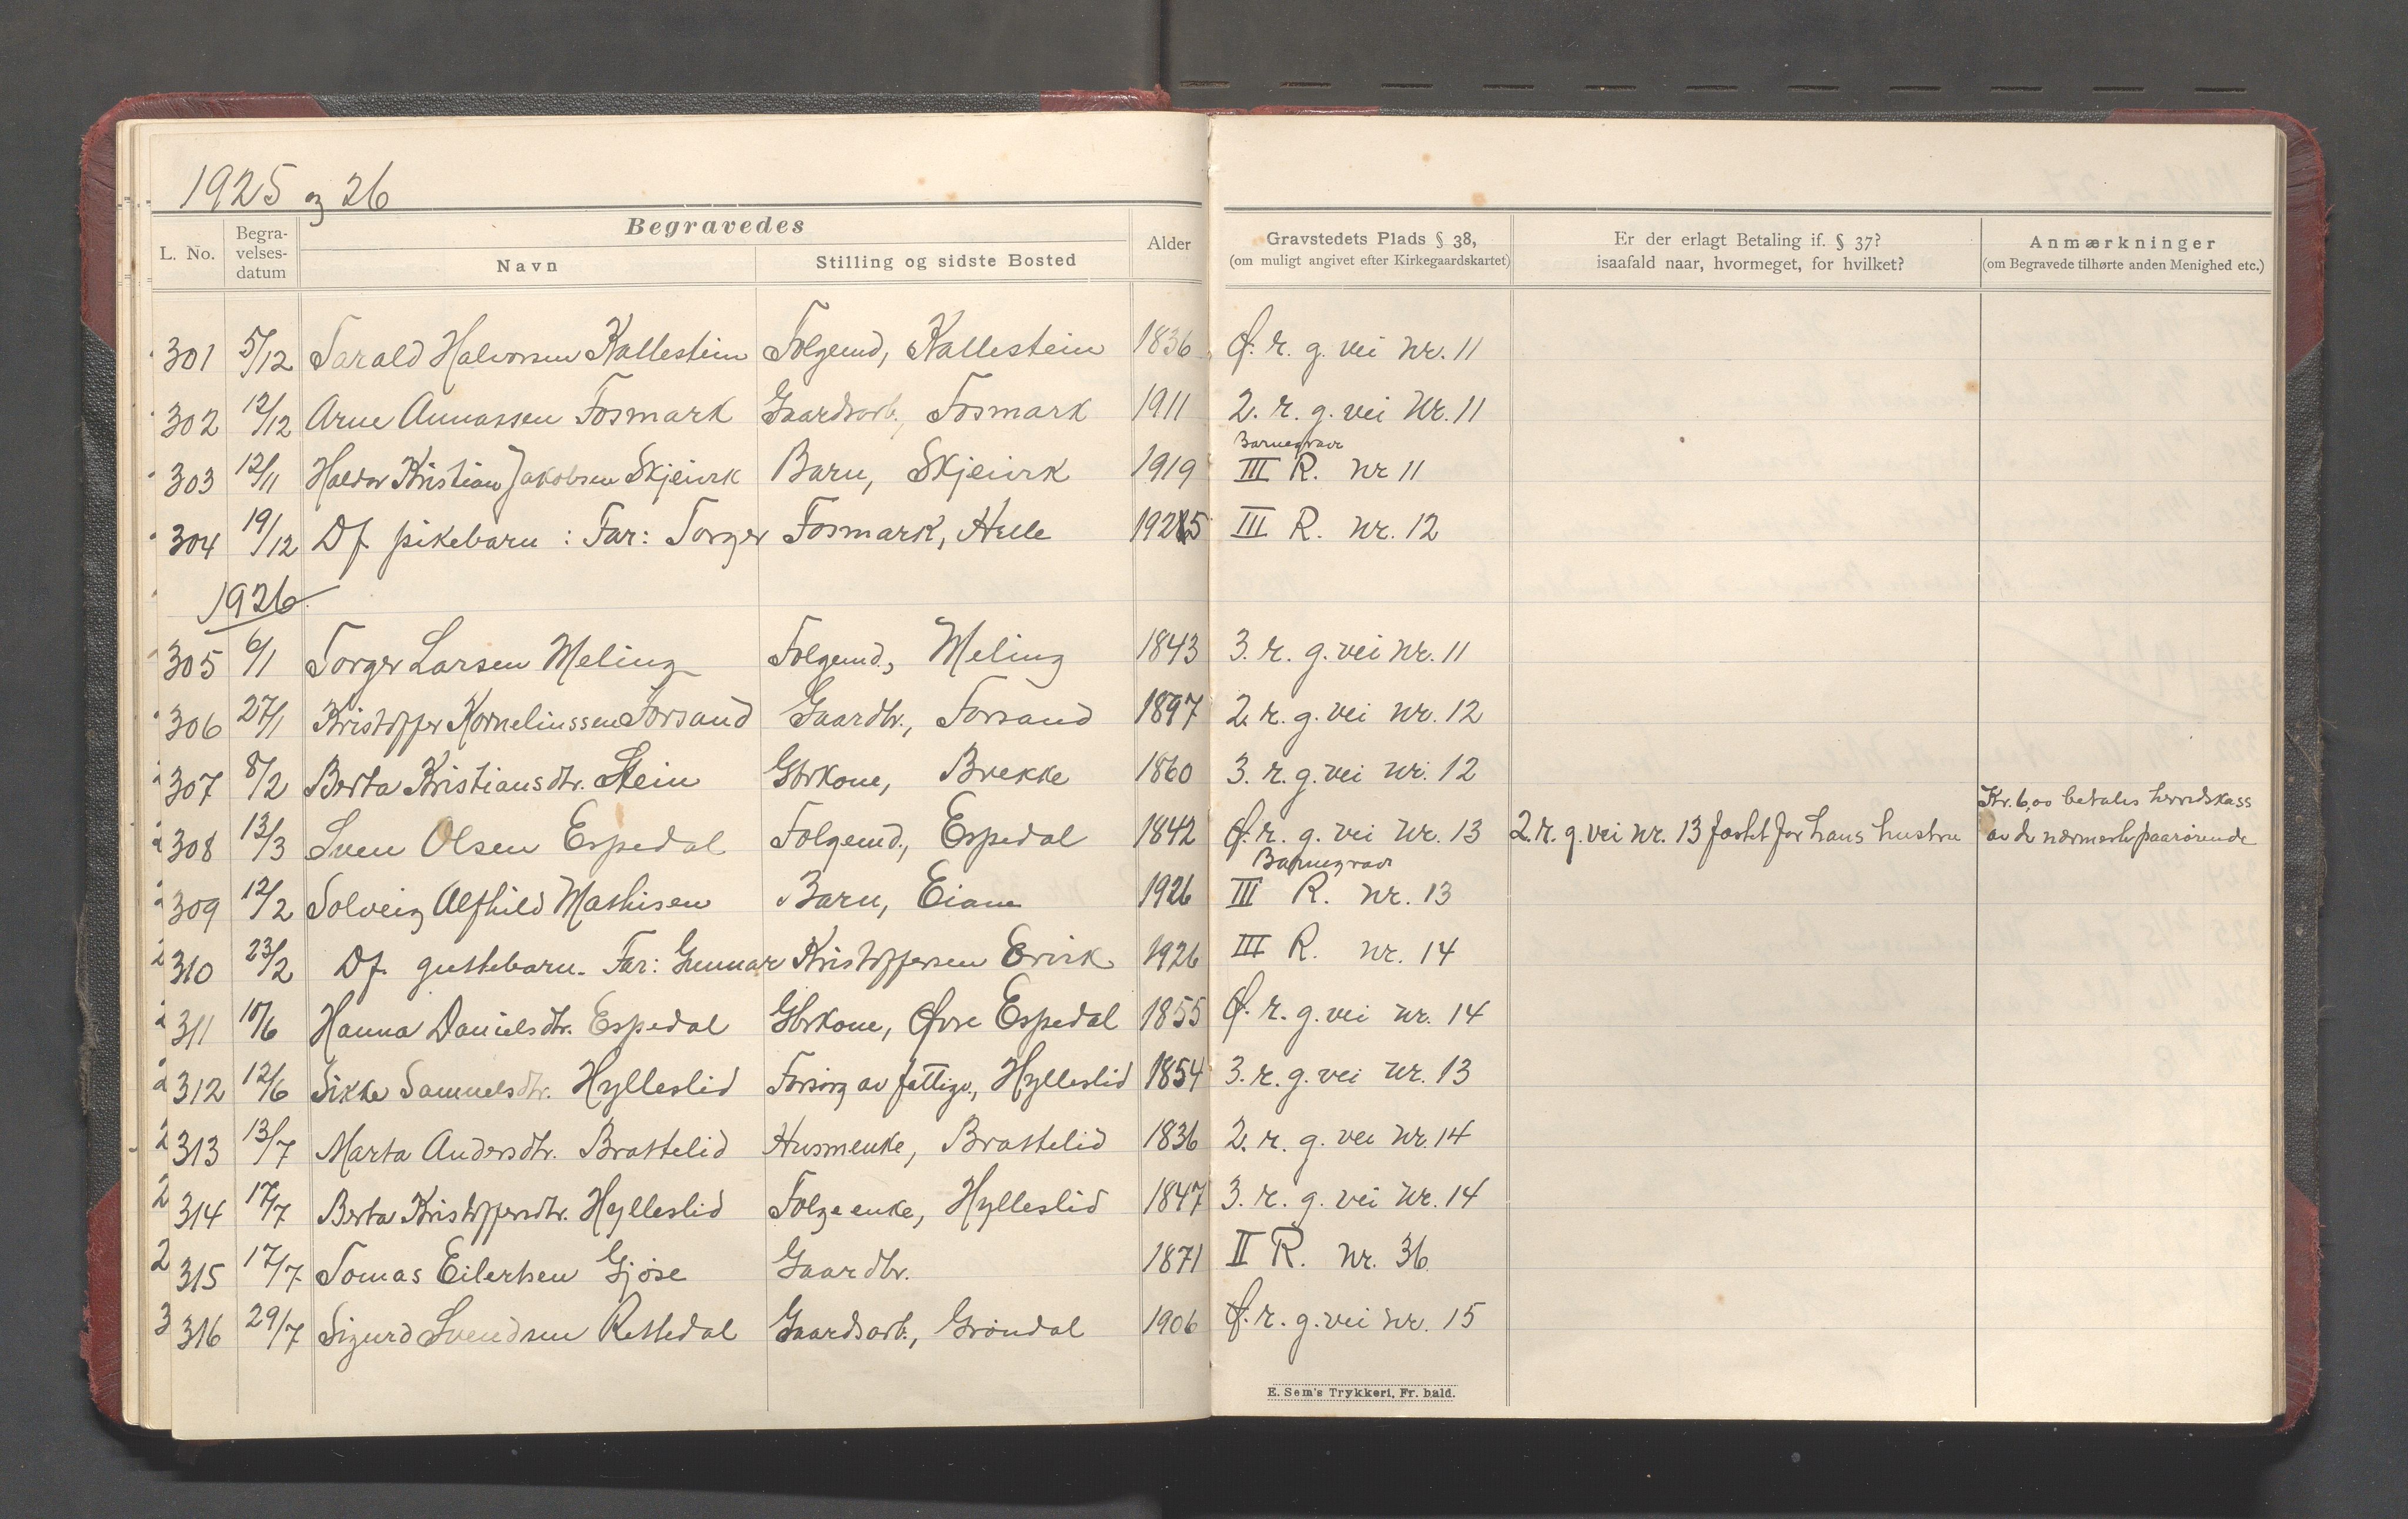 1925 og 26
Begravedes
L. No. Begra- velses- datum Navn Stilling og sidste Bosted Alder Gravstedets Plads § 38, (om muligt angivet efter Kirkegaardskartet) Er der erlagt Betaling if. § 37? isaafald naar, hvormeget, for hvilket? Anmærkninger (om Begravede tilhørte anden Menighed etc.)
301 5/12 Tarald Halvorsen Kallestein Følgemd, Kallestein 1836 Ø. r. g. vei nr. 11
302 12/12 Arne Annassen Fosmark Gaardsarb., Fosmark 1911 2. r. g. vei Nr. 11
Barnegrav
303 12/11 Haldor Kristian Jakobsen Skjeirk Barn, Skjeirk 1919 III R. nr 11
304 19/12 Df. pikebarn : Far: Torger Fosmark, Helle 1925 III R. nr. 12
1926
305 6/1 Torger Larsen Meling Følgemd., Meling 1843 3. r. g. vei nr. 11
306 27/1 Kristoffer Korneliussen Forsand Gaardbr., Forsand 1897 2. r. g. vei nr. 12
307 8/2 Berta Kristiansdtr. Stein Gbrkone, Brekke 1860 3. r. g. vei nr. 12
Kr. 6,00 betales herredskass
308 13/3 Sven Olsen Espedal Følgemd., Espedal 1842 Ø. r. g. vei nr. 13 2. r. g. vei nr. 13 fæstet for hans hustru av de nærmeste paarørende
Barnegrav
309 12/2 Solveig Alfhild Mathisen Barn, Eiane 1926 III R. nr. 13
310 23/2 Df. guttebarn. Far: Gunnar Kristoffersen Erirk 1926 III R. nr. 14
311 10/6 Hanna Danielsdtr. Espedal Gbrkone, Øvre Espedal 1855 Ø. r. g. vei nr. 14
312 12/6 Sikke Samuelsdtr. Hylleslid Forsørg av fattigv., Hylleslid 1854 3. r. g. vei nr. 13
313 13/7 Marta Andersdtr. Brattelid Husmenke, Brattelid 1836 2. r. g. vei nr. 14
314 17/7 Berta Kristoffersdtr. Hylleslid Følgeenke, Hylleslid 1847 3. r. g. vei nr. 14
315 17/7 Tomas Eilertsen Gjøse Gaardbr. 1871 II R. nr. 36
316 29/7 Sigurd Svendsen Rettedal Gaardsarb., Grøndal 1906 Ø. r. g. vei nr. 15
E. Sem's Trykkeri, Fr. hald.